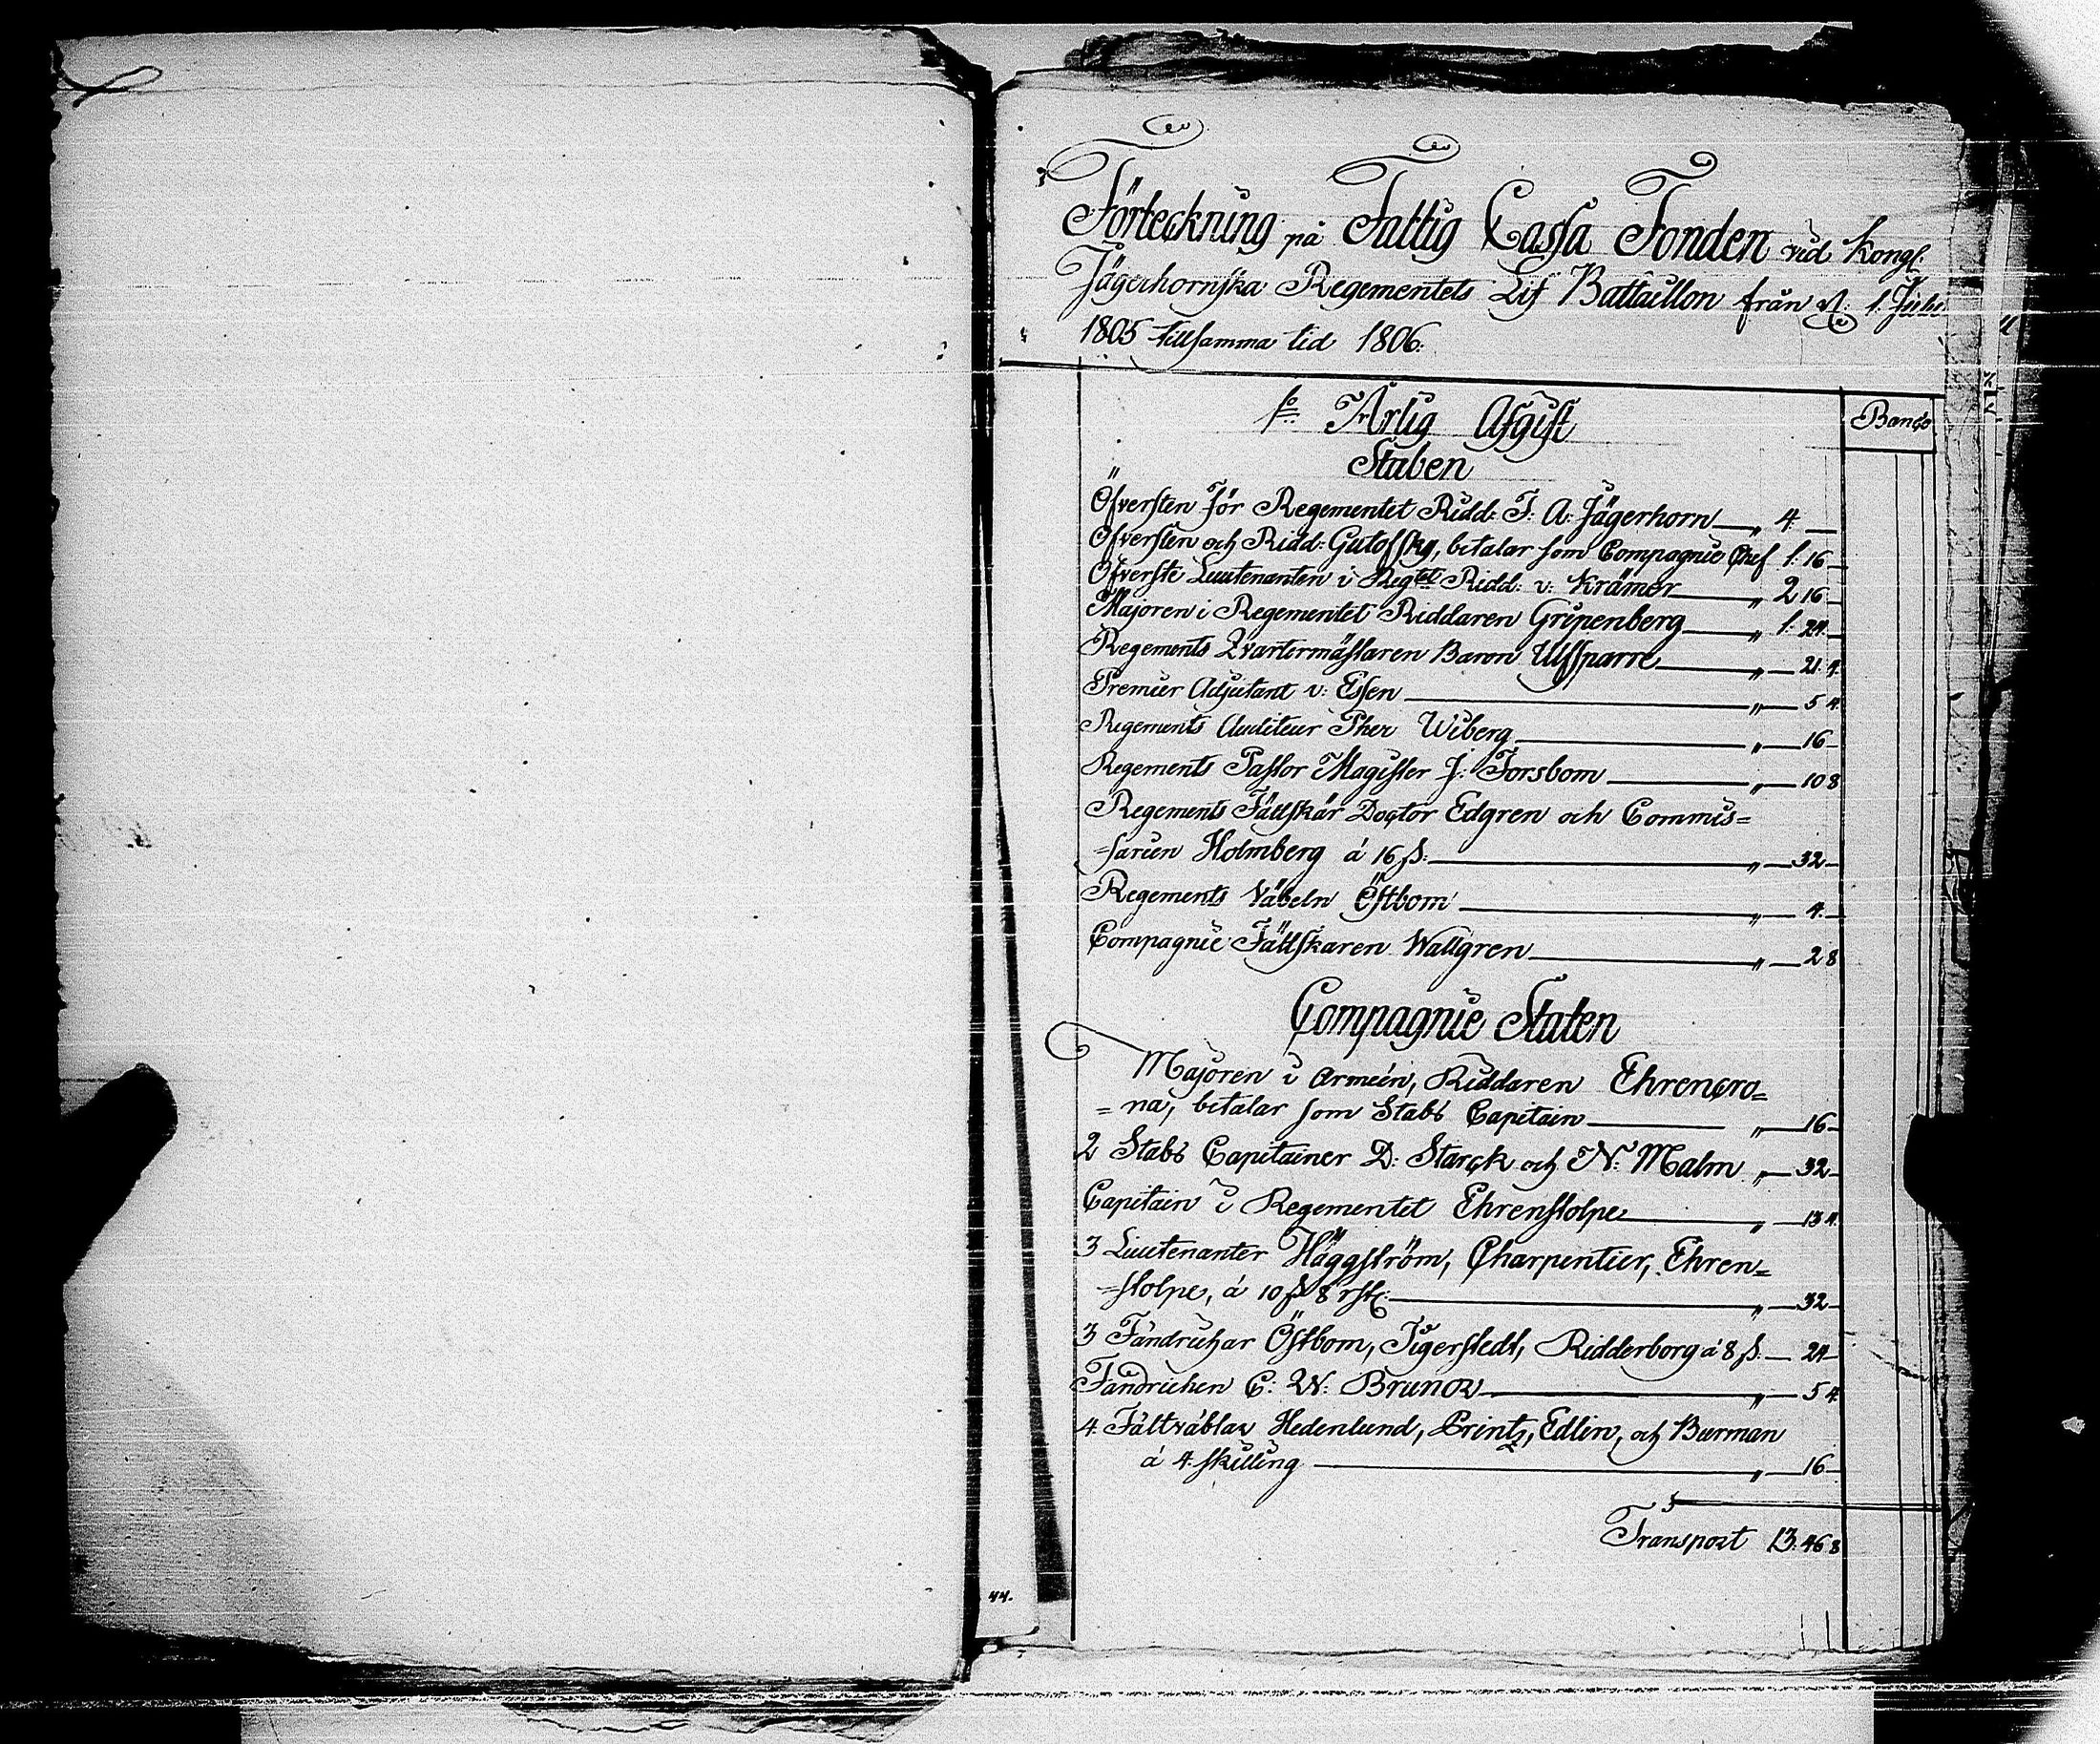 Förteckning på Fattig Cassa Fonden vid Kongl:
Jägerhornska Regementets Lif Battaillon från d: 1. Juli
1805 till samma tid 1806.
1o Årlig Afgift
Banco
Staben
Öfversten för Regementet Ridd: F: A: Jägerhorn — " 4. —
Öfversten och Ridd: Gutofsky, betalar som Compagnie Chef 1: 16 —
Öfverste Lieutenanten i Regtet Ridd: v: Krämer — " 2 16 —
Majoren i Regementet Riddaren Gripenberg — " 1: 24. —
Regements Qvartermästaren Baron Ulfsparre — " — 21. 4.
Premier Adjutant v: Essen — " — 5 4
Regements Auditeur Wiberg — " — 16 —
Regements Pastor Magister J: Forsbom — " — 10 8
Regements Fältskär Doctor Edgren och Commis=
=sarien Holmberg á 16 ß: — " — 32 —
Regements Väbeln Östbom — " — 4. —
Compagnie Fältskaren Wallgren — " — 2 8
Compagnie Staten
Majoren i Arméen, Riddaren Ehrencro=
=na, betalar som Stabs Capitain — " — 16 —
2 Stabs Capitainer D: Starck och N: Malm " — 32 —
Capitain i Regementet Ehrenstolpe — " — 13 4.
3 Lieutenanter Häggström, Charpentier, Ehren=
=stolpe, á 10 ß 8 rst: — " — 32 —
3 Fändrichar Östbom, Tigerstedt, Ridderborg á 8 ß. — 24 —
Fändrichen C: W: Brunow — " — 5 4
4. Fältväblar Hedenlund, Printz, Edlin, och Burman
á 4. skilling — " — 16 —
Transport 13. 46 8
44.